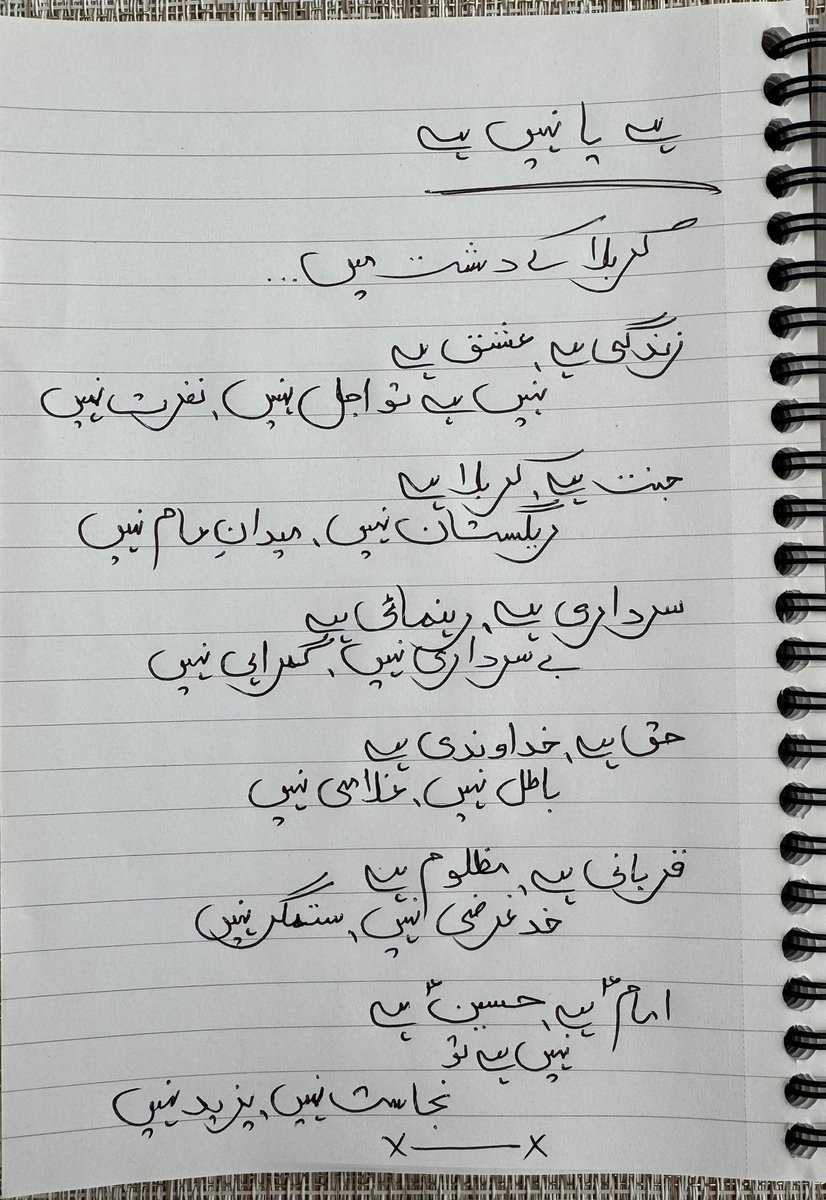 ہے یا نہیں ہے
کربلا کے دشت میں...
زندگی ہے، عشق ہے
نہیں ہے تو اجل نہیں، نفرت نہیں
جنت ہے، کربلا ہے
ریگستان نہیں، میدانِ عام نہیں
سرداری ہے، رہنمائی ہے
بے سرداری نہیں، گمراہی نہیں
حق ہے، خداوندی ہے
باطل نہیں، غلامی نہیں
قربانی ہے، مظلوم ہے
خد غرضی نہیں، ستمگر نہیں
امامؑ ہے، حسینؑ ہے
نہیں ہے تو
نجاست نہیں، یزید نہیں
x——x